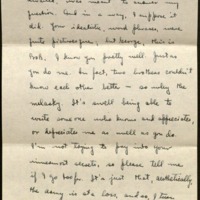 question. And in a way, I suppose it
did. Your idealistic, word phrases, were
quite picturesque, but George, this is
both. I know you pretty well. Just as
you do me. In fact, two brothers couldn't
know each other better - so why the
It's swell being able to
write one who knows and appreciates,
or depreciates me as well as you do.
I'm not trying to pry into your
innermost secrets, so please tell me
if I go deep. It's just that, aesthetically,
the army is at a loss and so, I turn